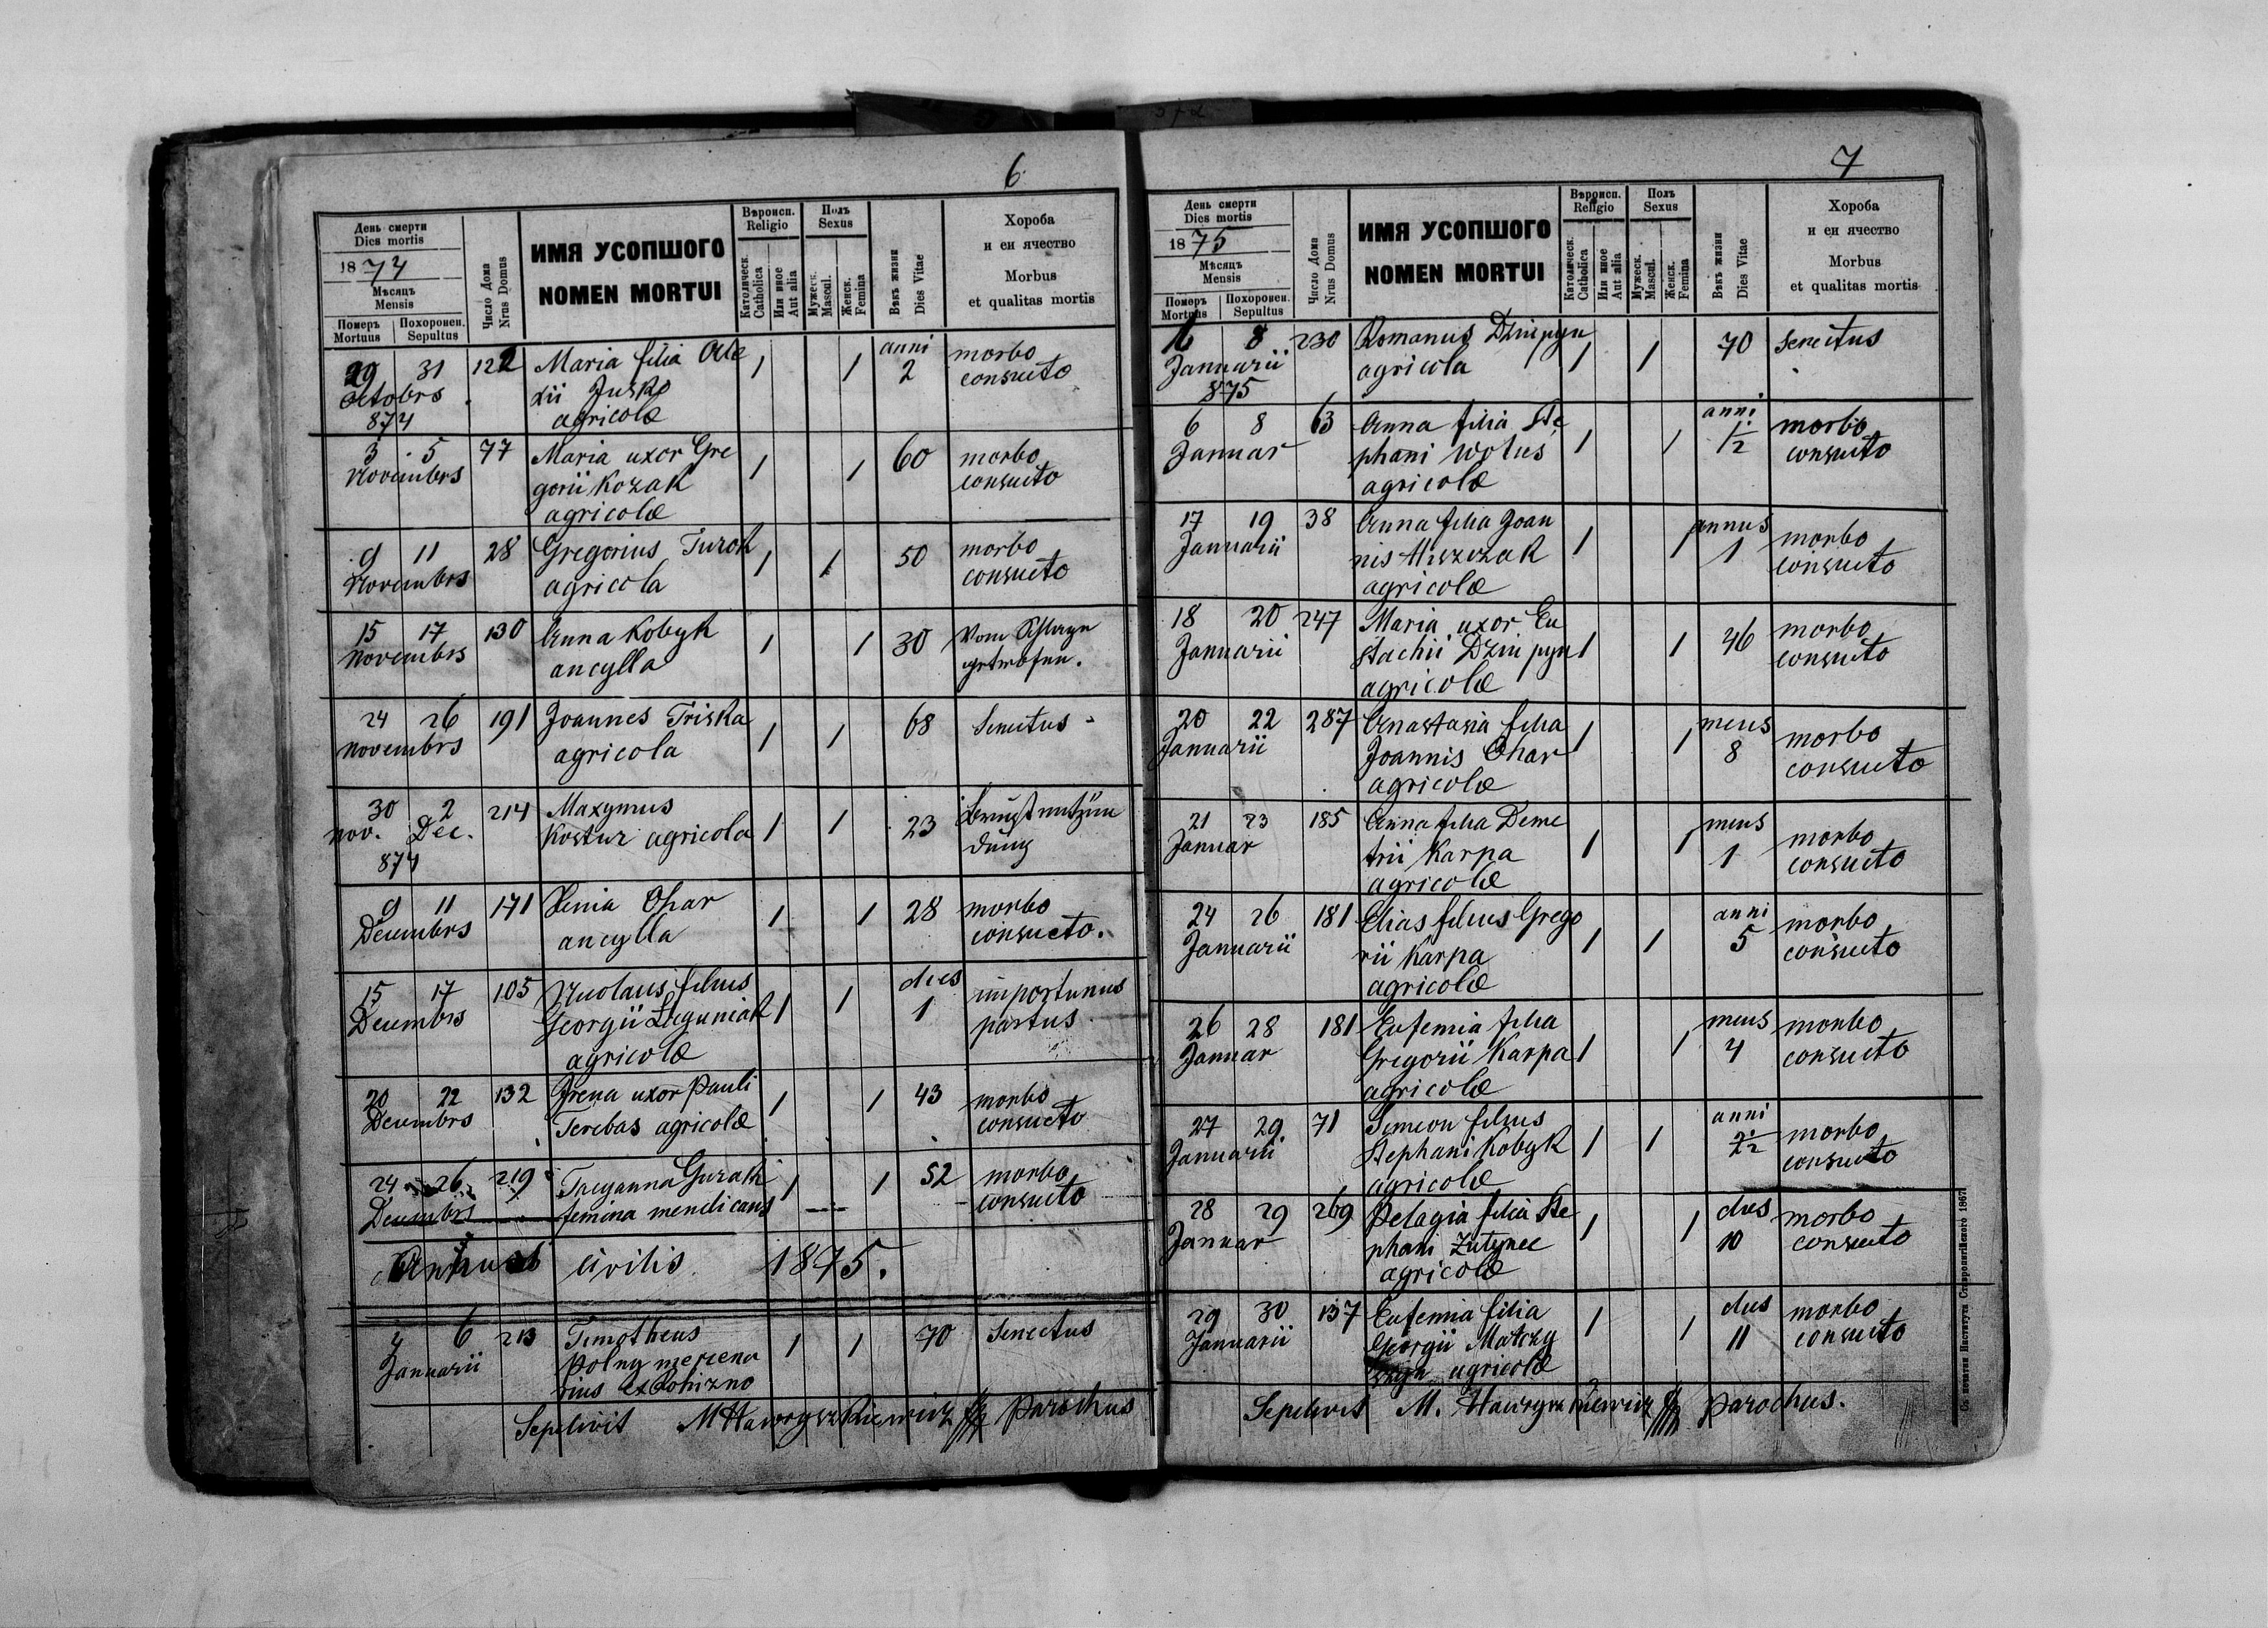 6.
День смерти
Dies mortis
1874
Мѣсяцъ
Mensis
Померъ
Mortuus
Похоронен.
Sepultus
Число Дома
Nrus Domus
ИМЯ УСОПШОГО
NOMEN MORTUI
Вѣроисп.
Religio
Католическ.
Catholica
Или иное
Aut alia
Полъ
Sexus
Мужеск.
Mascul.
Женск.
Femina
Вѣкъ жизни
Dies Vitae
Хороба
и еи ячество
Morbus
et qualitas mortis
29 31 122 Maria filia Ale 1 1 anni 2 morbo
Octobrs xii Jusko consueto
874 agricolæ
3 5 77 Maria uxor Gre 1 1 60 morbo
Novembrs gorii Kozak consueto
agricolæ
9 11 28 Gregorius Turok 1 1 50 morbo
Novembrs agricola consueto
15 17 130 Anna Kobyk 1 1 30 Vom Schlage
Novembrs ancylla getroffen.
24 26 191 Joannes Triska 1 1 68 Senectus
Novembrs agricola
30 2 214 Maxymus 1 1 23 Brustentzün
Nov. Dec. Kostur agricola dung
874
9 11 171 Xenia Ohar 1 1 28 morbo
Decembrs ancylla consueto.
15 17 105 Nicolaus filius 1 1 dies 1 importunus
Decembrs Georgii Laguniak partus
agricolæ
20 22 132 Irena uxor Pauli 1 1 43 morbo
Decembrs Terebas agricolæ consueto
24 26 219 Tacyanna Gurak 1 1 52 morbo
Decembris femina mendicans consueto
Annus civilis 1875.
4 6 213 Timotheus 1 1 70 Senectus
Januarii Polny mercena
rius
Sepelivit M Hawryszkiewicz Parochus
7
День смерти
Dies mortis
1875
Мѣсяцъ
Mensis
Померъ
Mortuus
Похоронен.
Sepultus
Число Дома
Nrus Domus
ИМЯ УСОПШОГО
NOMEN MORTUI
Вѣроисп.
Religio
Католическ.
Catholica
Или иное
Aut alia
Полъ
Sexus
Мужеск.
Mascul.
Женск.
Femina
Вѣкъ жизни
Dies Vitae
Хороба
и еи ячество
Morbus
et qualitas mortis
6 8 230 Romanus Dziupyn 1 1 70 Senectus
Januarii agricola
875
6 8 63 Anna filia Ste 1 1 anni 1/2 morbo
Januar phani Wolus consueto
agricolæ
17 19 38 Anna filia Joan 1 1 annus 1 morbo
Januarii nis Miszczak consueto
agricolæ
18 20 247 Maria uxor Eu 1 1 46 morbo
Januarii stachii Dziupyn consueto
agricolæ
20 22 287 Anastasia filia 1 1 mens 8 morbo
Januarii Joannis Ohar consueto
agricolæ
21 23 185 Anna filia Deme 1 1 mens 1 morbo
Januar trii Karpa consueto
agricolæ
24 26 181 Elias filius Grego 1 1 anni 5 morbo
Januarii rii Karpa consueto
agricolæ
26 28 181 Eufemia filia 1 1 mens 4 morbo
Januar Gregorii Karpa consueto
agricolæ
27 29 71 Simeon filius 1 1 anni morbo
Januarii Stephani Kobyk consueto
agricolæ
28 29 269 Pelagia filia Ste 1 1 dies 10 morbo
Januar phani Zutynec consueto
agricolæ
29 30 137 Eufemia filia 1 1 dies 11 morbo
Januarii Georgii Matczy consueto
agricolæ
Sepelivit M. Hawryszkiewicz Parochus.
Ставропигійского 1867